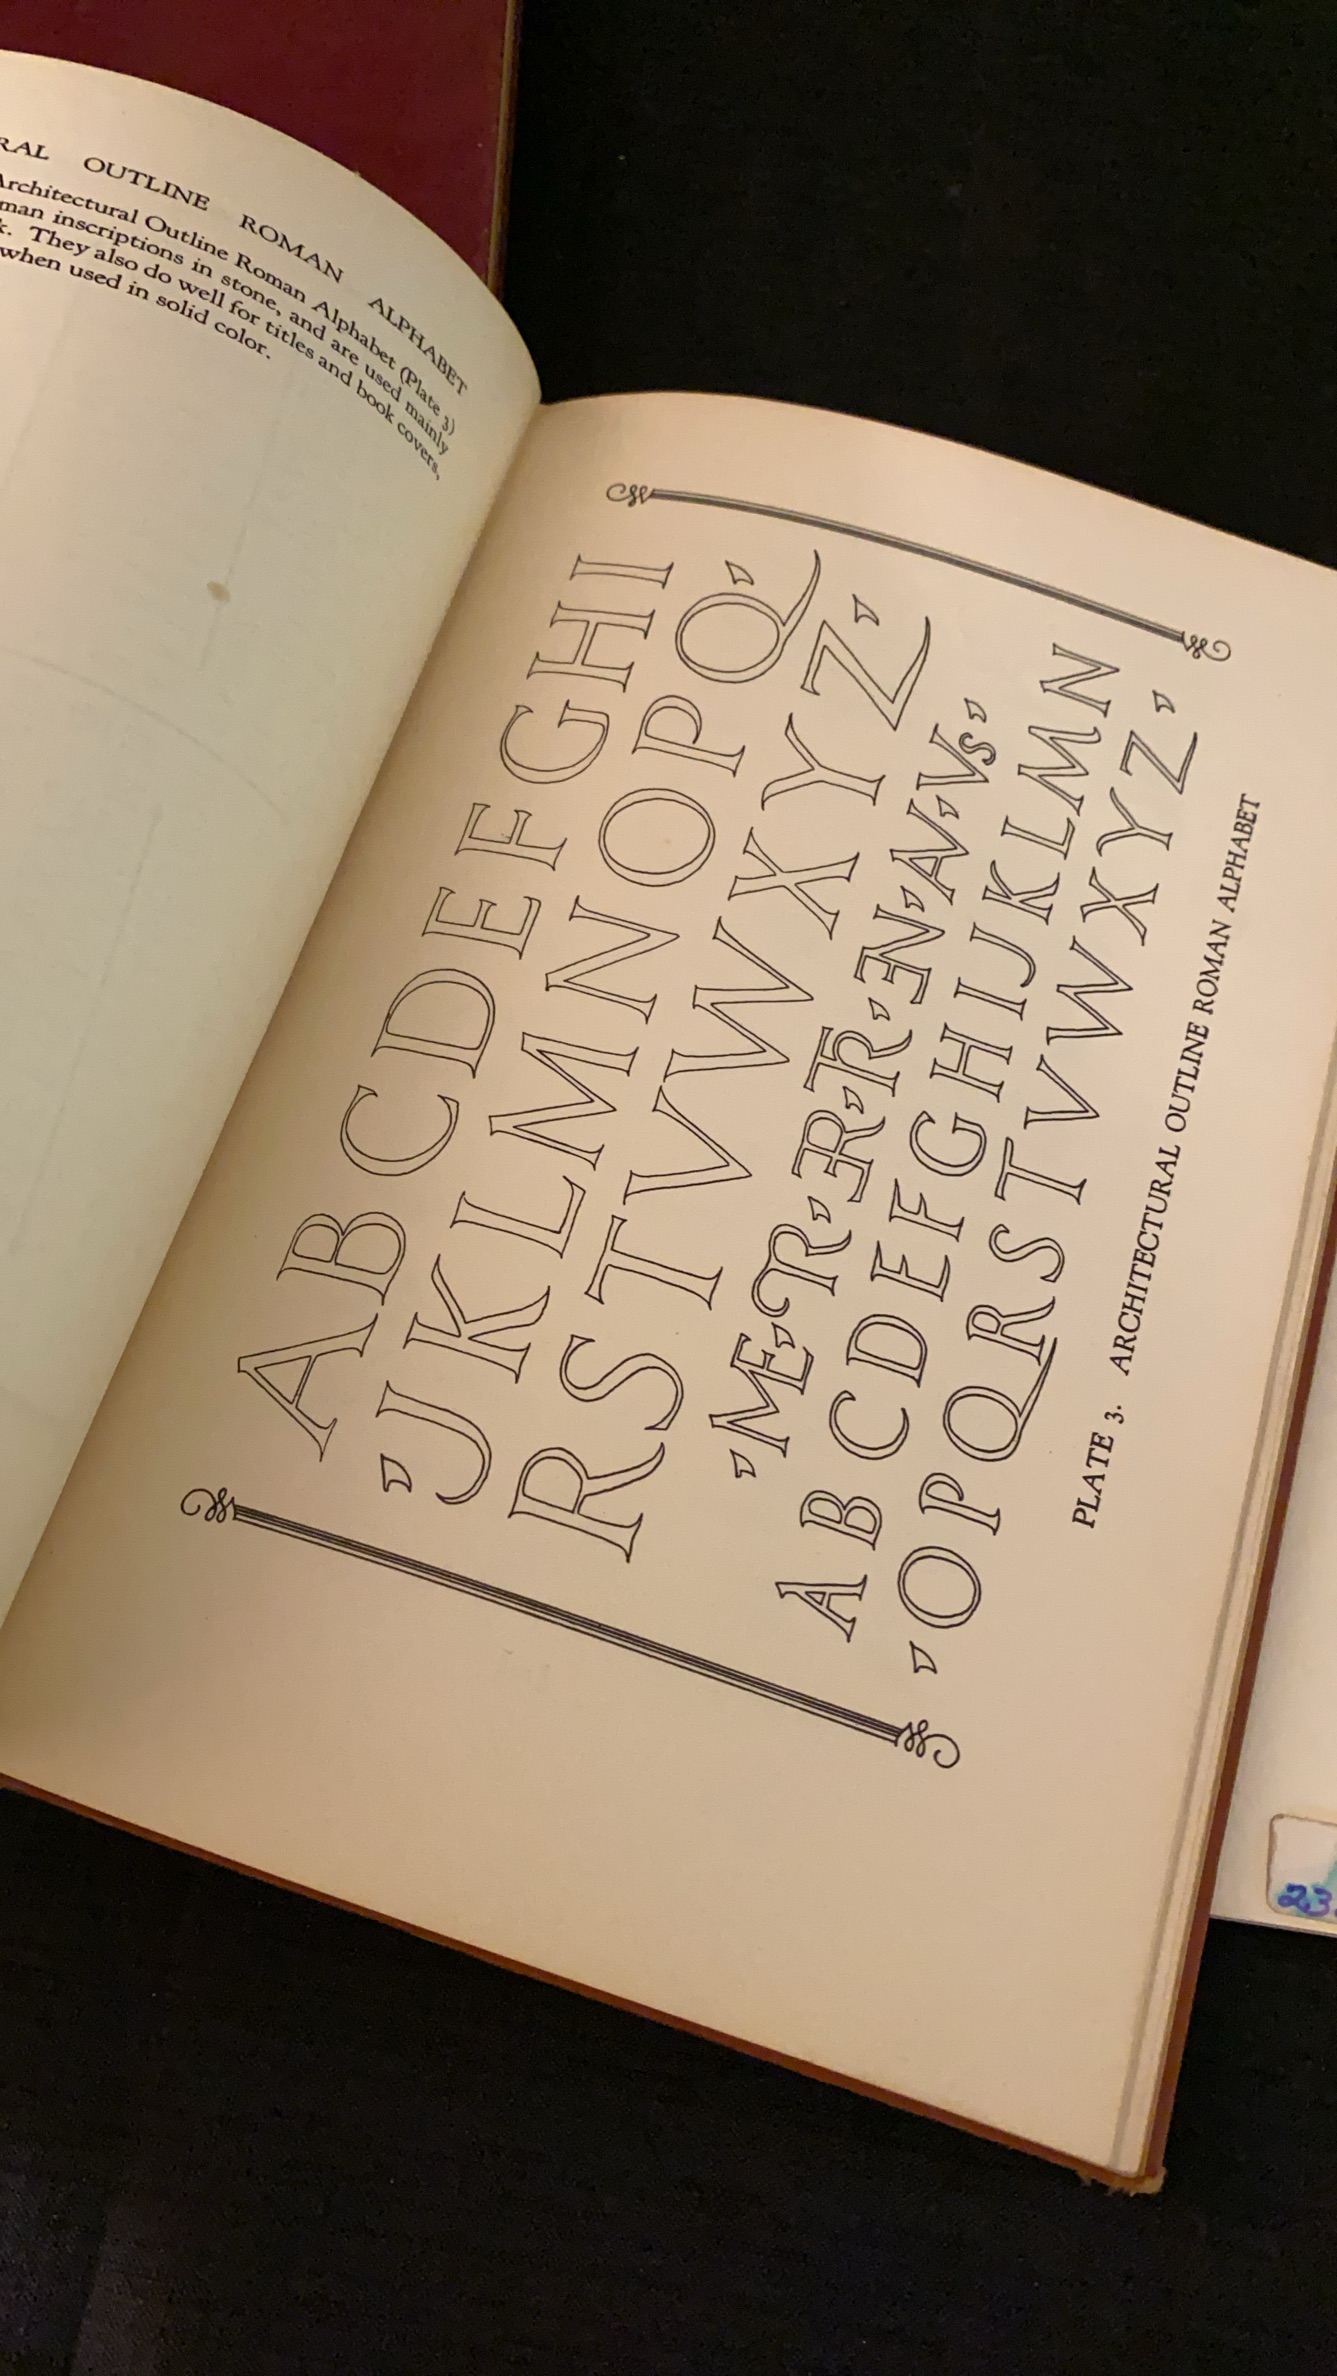 RAL OUTLINE ROMAN ALPHABET
Architectural Outline Roman Alphabet (Plate 3)
man inscriptions in stone, and are used mainly
k. They also do well for titles and book covers,
when used in solid color.
A B C D E F G H I
, J K L M N O P Q ,
R S T V W X Y Z ,
A B C D E F G H I J K L M N
, O P Q R S T V W X Y Z ,
PLATE 3. ARCHITECTURAL OUTLINE ROMAN ALPHABET
23